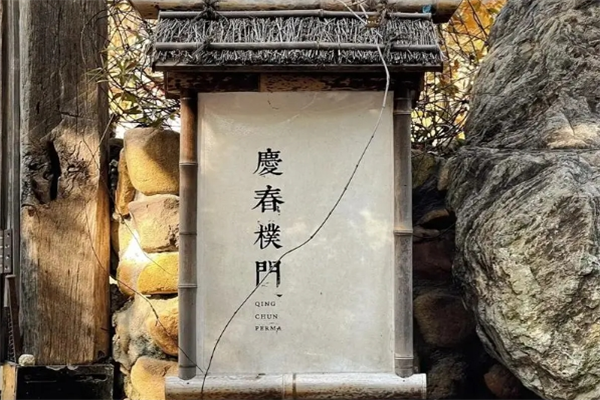 慶春樸門
QING
CHUN
PERMA